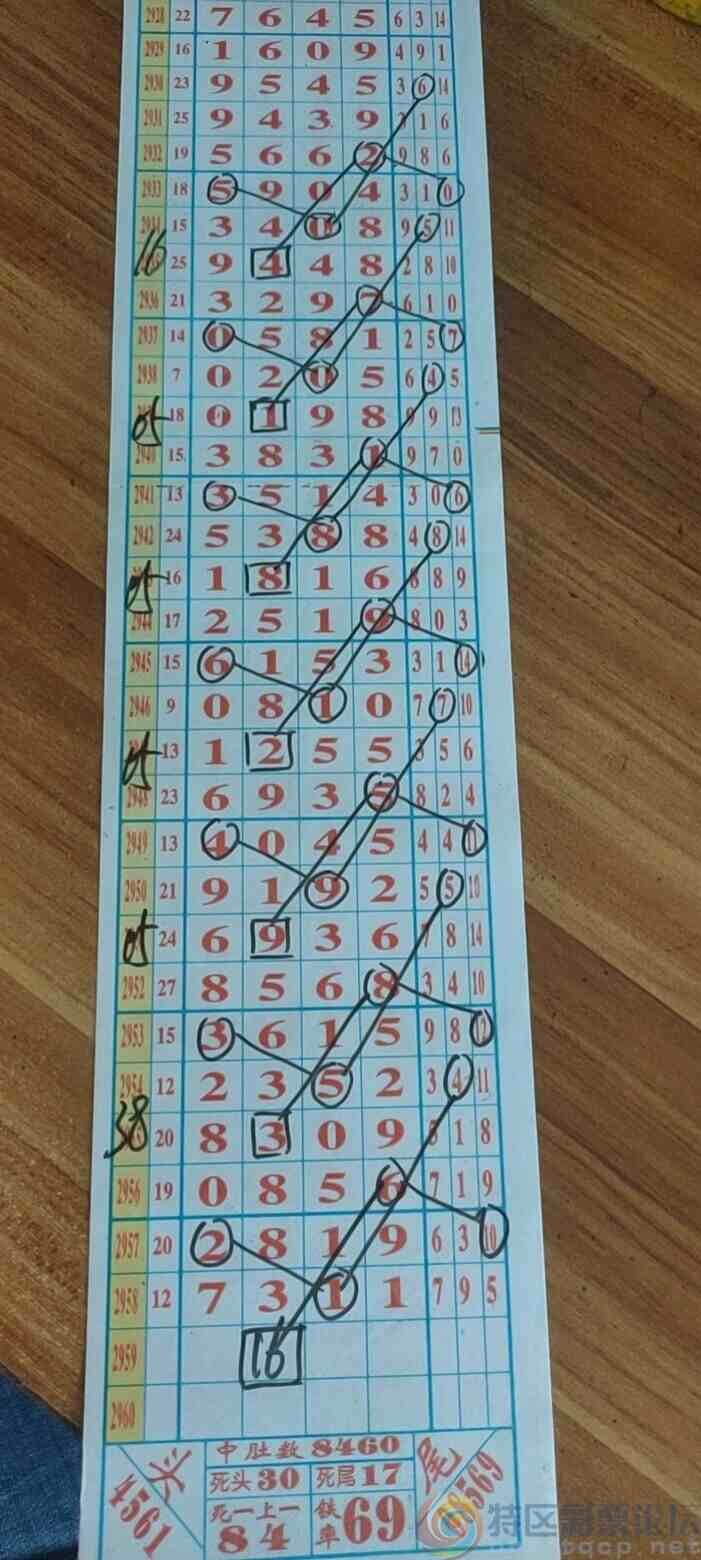 2928 22 7 6 4 5 6 3 14
2929 16 1 6 0 9 4 9 1
2930 23 9 5 4 5 3 6 14
2931 25 9 4 3 9 1 6
2932 19 5 6 6 2 9 8 6
2933 18 5 9 0 4 3 1 0
2934 15 3 4 0 8 9 5 11
16 25 9 4 4 8 2 8 10
2936 21 3 2 9 7 6 1 0
2937 14 0 5 8 1 2 5 7
2938 7 0 2 0 5 6 4 5
05 18 0 1 9 8 9 9 13
2940 15 3 8 3 1 9 7 0
2941 13 3 5 1 4 3 0 6
2942 24 5 3 8 8 4 8 14
05 16 1 8 1 6 8 8 9
2944 17 2 5 1 9 8 0 3
2945 15 6 1 5 3 3 1 14
2946 9 0 8 1 0 7 7 10
05 13 1 2 5 5 3 5 6
2948 23 6 9 3 5 8 2 4
2949 13 4 0 4 5 4 4 11
2950 21 9 1 9 2 5 5 10
05 24 6 9 3 6 7 8 14
2952 27 8 5 6 8 3 4 10
2953 15 3 6 1 5 9 8 12
2954 12 2 3 5 2 3 4 11
38 20 8 3 0 9 1 8
2956 19 0 8 5 6 7 1 9
2957 20 2 8 1 9 6 3 10
2958 12 7 3 1 1 7 9 5
2959 16
2960
中胜数8460
头 4561
死头30 死尾17
尾 3569
死一上一 84
铁率69
特区彩票论坛
tqcp.net